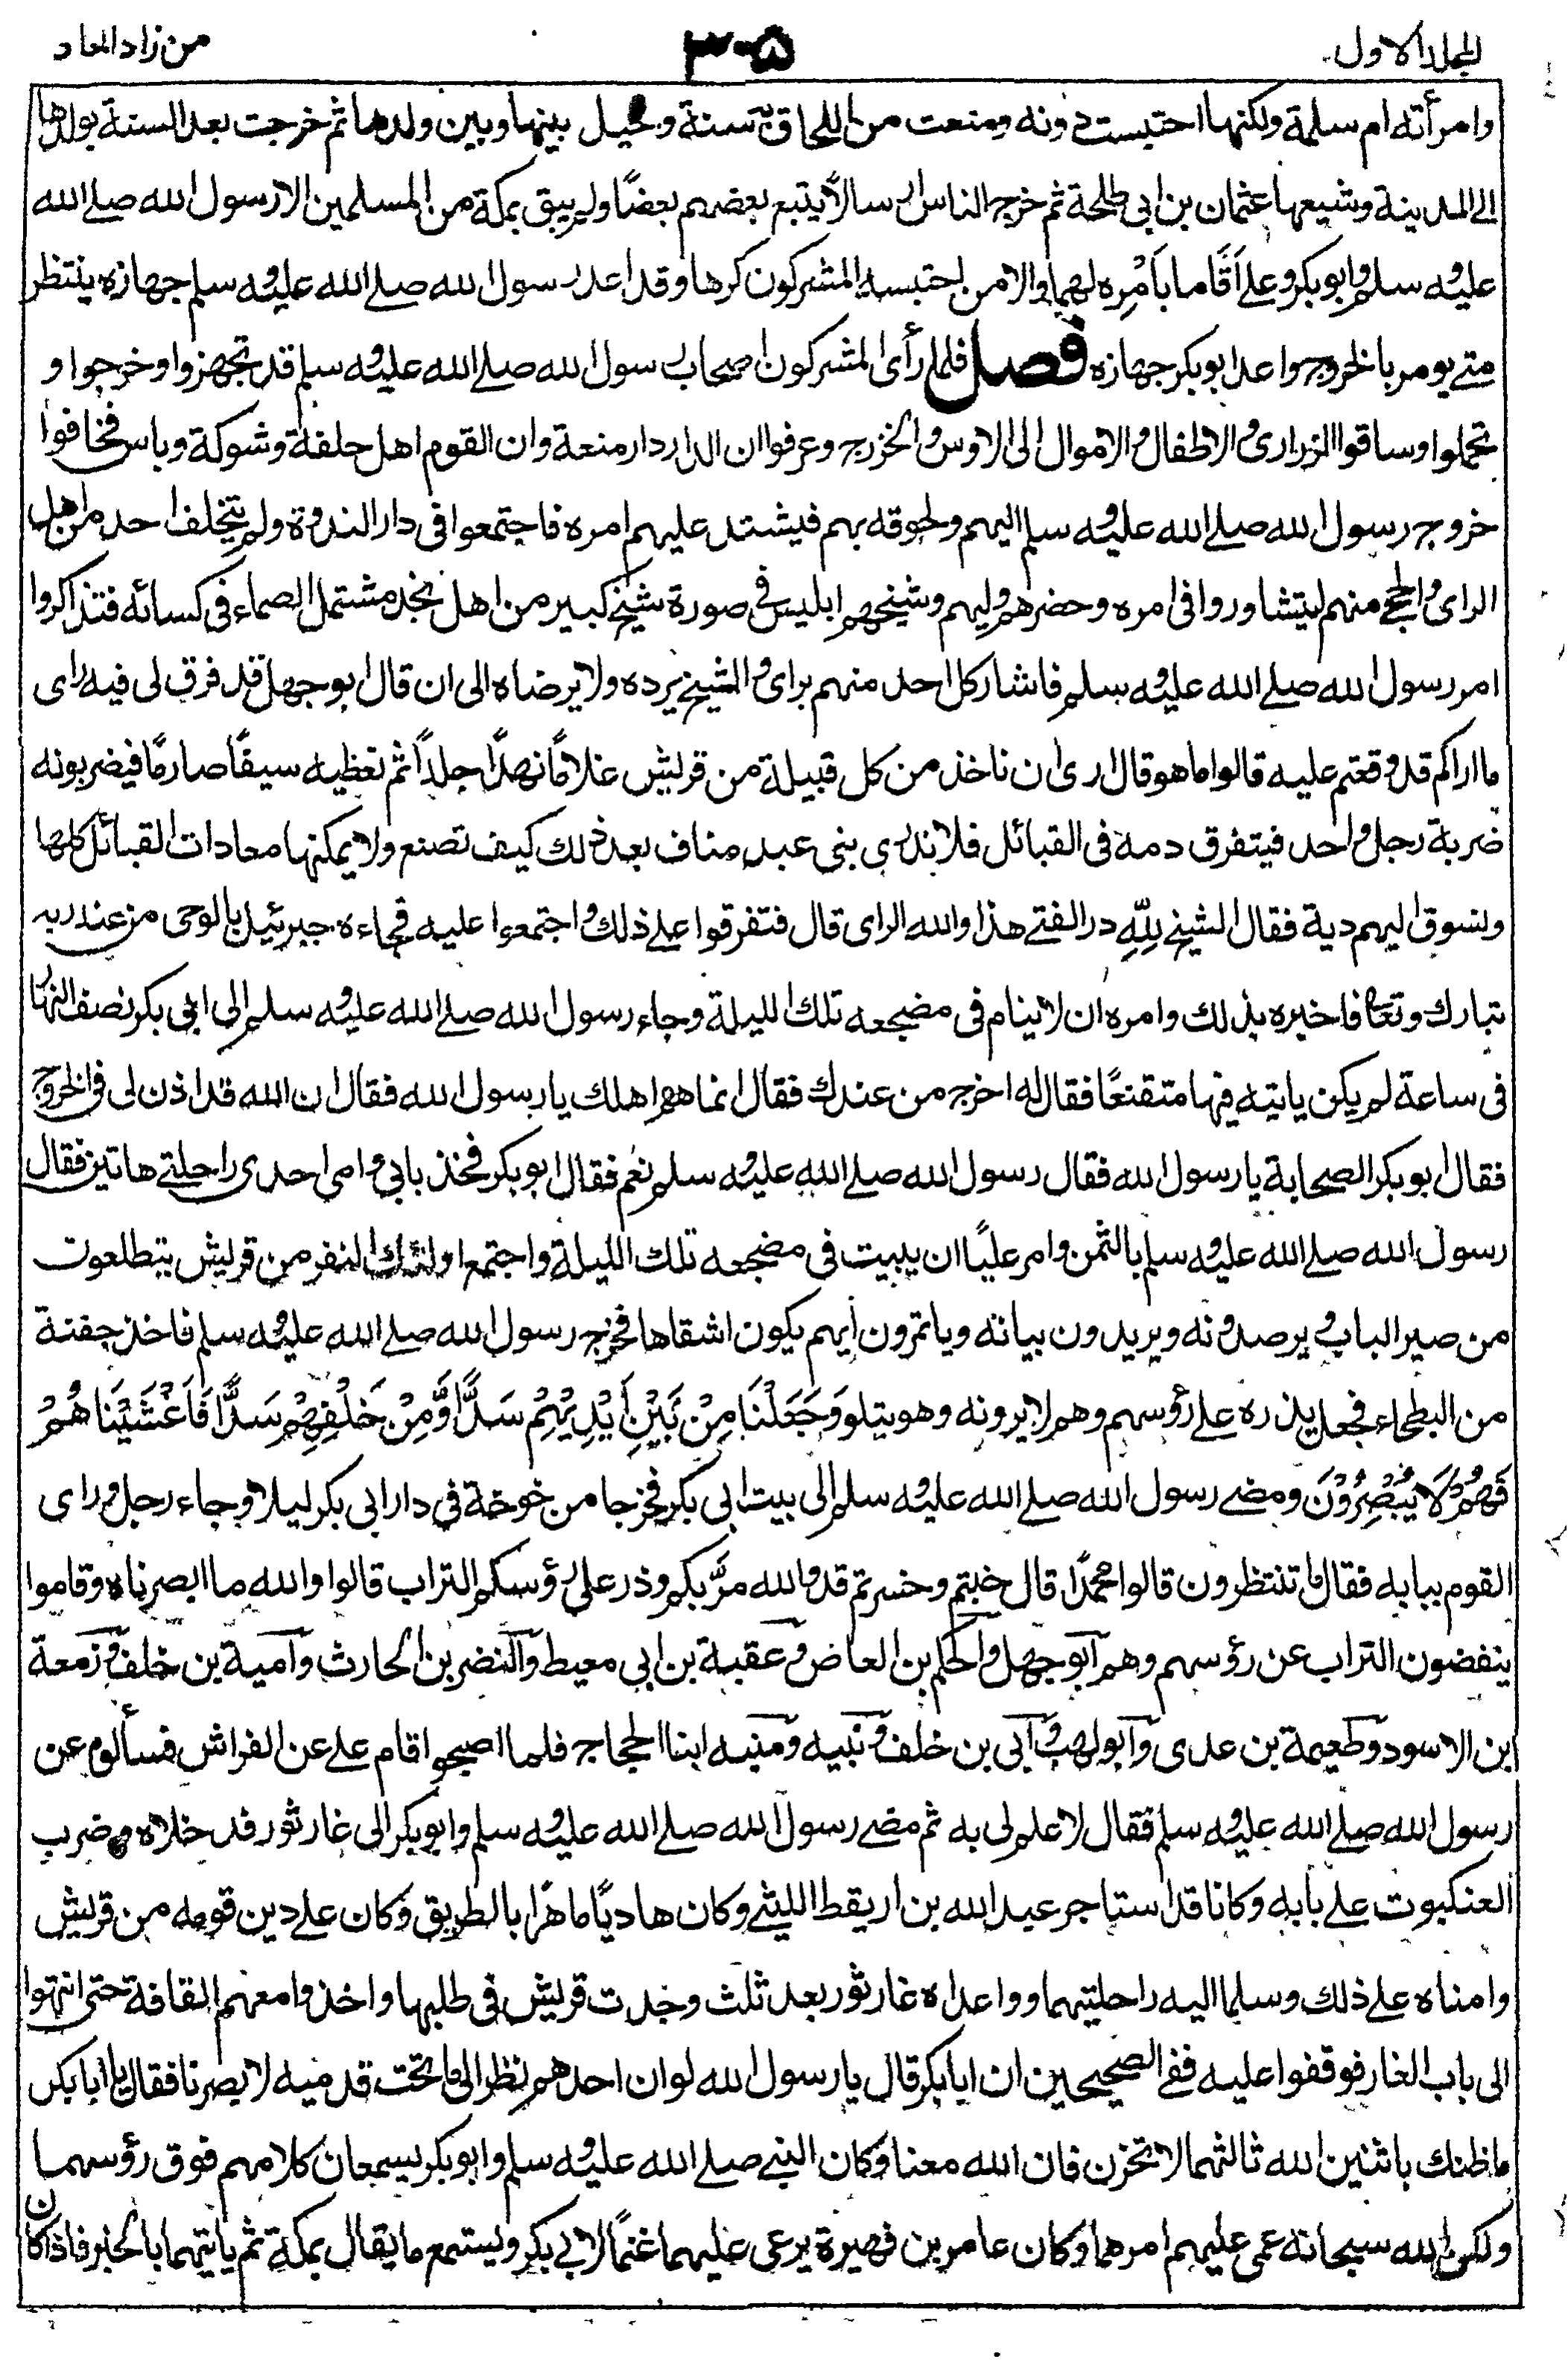 المجلد الاول
٣٠٥
من زاد المعاد
وامرأته ام سلمة ولكنها احتبست دونه ومنعت من اللحاق به سنة وحيل بينها وبين ولدها ثم خرجت بعد السنة بولدها
الى المدينة وشيعها عثمان بن ابى طلحة ثم خرج الناس ارسالًا يتبع بعضهم بعضًا ولم يبق بمكة من المسلمين الا رسول الله صلے الله
عليه وسلم وابو بكر وعلے اَقَاما باَمْرِه لهما والا من احتبسه المشركون كرها وقد اعد رسول الله صلے الله عليه وسلم جهازه ينتظر
متے يومر بالخروج واعد ابو بكر جهازه فصل فلما رأى المشركون اصحاب رسول الله صلے الله عليه وسلم قد تجهزوا وخرجوا و
تحملوا وساقوا الذرارى والاطفال والاموال الى الاوس والخزرج وعرفوا ان الدار دار منعة وان القوم اهل حلقة وشوكة وباس فخافوا
خروج رسول الله صلے الله عليه وسلم اليهم ولحوقه بهم فيشتد عليهم امره فاجتمعوا فى دار الندوة ولم يتخلف احد من اهل
الراى والحجے منهم ليتشاوروا فى امره وحضرهم وليهم وشيخهم ابليس فى صورة شيخ كبير من اهل نجد مشتمل الصماء فى كسائه فتذاكروا
امر رسول الله صلے الله عليه وسلم فاشار كل احد منهم براى والشيخ يرده ولا يرضاه الى ان قال ابو جهل قد فرق لى فيه راى
ما اراكم قد وقعتم عليه قالوا ما هو قال ارى ان ناخذ من كل قبيلة من قريش غلامًا نهدًا جلدًا ثم نعطيه سيفًا صارمًا فيضربونه
ضربة رجل واحد فيتفرق دمه فى القبائل فلا ندرى بنى عبد مناف بعد ذلك كيف تصنع ولا يمكنها معادات القبائل كلها
ونسوق اليهم دية فقال الشيخ لِلّٰهِ در الفتے هذا والله الراى قال فتفرقوا علے ذلك واجتمعوا عليه فجاءه جبرئيل بالوحى من عند ربه
تبارك وتعا فاخبره بذلك وامره ان لا ينام فى مضجعه تلك الليلة وجاء رسول الله صلے الله عليه وسلم الى ابى بكر نصف النهار
فى ساعة لم يكن ياتيه فيها متقنعًا فقال له اخرج من عندك فقال انما هم اهلك يا رسول الله فقال ان الله قد اذن لى فى الخروج
فقال ابو بكر الصحابة يا رسول الله فقال رسول الله صلے الله عليه وسلم نعم فقال ابو بكر فخذ بابى وامى احدى راحلتے هاتين فقال
رسول الله صلے الله عليه وسلم بالثمن وامر عليًا ان يبيت فى مضجعه تلك الليلة واجتمع اولئك النفر من قريش يتطلعون
من صير الباب ويرصدونه ويريدون بياته وياتمرون أيهم يكون اشقاها فخرج رسول الله صلے الله عليه وسلم فاخذ حفنة
من البطحاء فجعل يذره علے رؤسهم وهم لا يرونه وهو يتلو وَجَعَلْنَا مِنْ بَيْنِ أَيْدِيْهِمْ سَدًّا وَّمِنْ خَلْفِهِمْ سَدًّا فَاَغْشَيْنَاهُمْ
فَهُمْ لَا يُبْصِرُوْنَ ومضے رسول الله صلے الله عليه وسلم الى بيت ابى بكر فخرجا من خوخة فى دار ابى بكر ليلا وجاء رجل وراى
القوم ببابه فقال ما تنتظرون قالوا محمدًا قال خبتم وخسرتم قد والله مرَّ بكم وذر على رؤسكم التراب قالوا والله ما ابصرناه وقاموا
ينفضون التراب عن رؤسهم وهم ابو جهل والحكم بن العاص وعقبة بن ابى معيط والنضر بن الحارث وامية بن خلف وزمعة
ابن الاسود وطعيمة بن عدى وابو لهب وابى بن خلف ونبيه ومنبه ابنا الحجاج فلما اصبحوا قام علے عن الفراش فسألوه عن
رسول الله صلے الله عليه وسلم فقال لا علم لى به ثم مضے رسول الله صلے الله عليه وسلم وابو بكر الى غار ثور فدخلاه وضرب
العنكبوت علے بابه وكانا قد استاجر عبد الله بن اريقط الليثے وكان هاديًا ماهرًا بالطريق وكان علے دين قومه من قريش
وامناه علے ذلك وسلما اليه راحلتيهما وواعداه غار ثور بعد ثلث وجدت قريش فى طلبها واخذوا معهم القافة حتى انتهوا
الى باب الغار فوقفوا عليه ففے الصحيحين ان ابا بكر قال يا رسول الله لو ان احدهم نظر الى ما تحت قدميه لابصرنا فقال يا ابا بكر
ما ظنك باثنين الله ثالثهما لا تحزن فان الله معنا وكان النبے صلے الله عليه وسلم وابو بكر يسمعان كلامهم فوق رؤسهما
ولكن الله سبحانه عمى عليهم امرهما وكان عامر بن فهيرة يرعى عليهما غنمًا لابى بكر ويستمع ما يقال بمكة ثم ياتيهما بالخبر فاذا كان